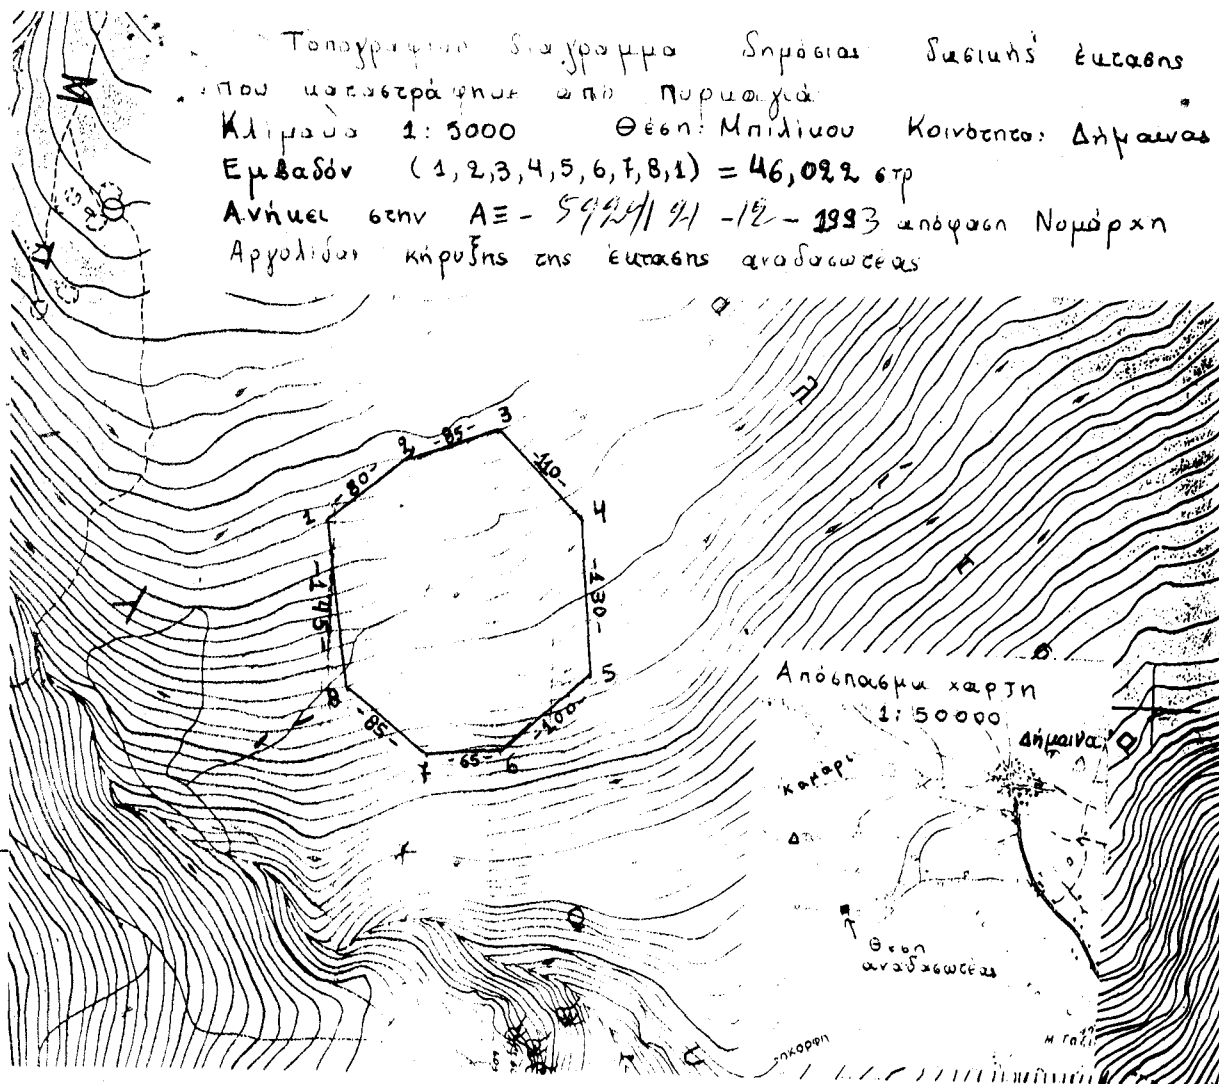 Τοπογραφικό διάγραμμα δημόσιας δασικής έκτασης
που καταστράφηκε από πυρκαγιά
Κλίμακα 1:5000 Θέση: Μπιλίκου Κοινότητα: Δήμαινας
Εμβαδόν (1,2,3,4,5,6,7,8,1) = 46,022 στρ
Ανήκει στην ΑΞ- 5924/21-12-1993 απόφαση Νομάρχη
Αργολίδας κήρυξης της έκτασης αναδασωτέας
3
2 -85-
-110-
-80-
1
4
-145-
-130-
5
8
-85-
-100-
7 -65- 6
Απόσπασμα χάρτη
1:50000
Δήμαινα
Καμάρι
Δ
Θέση
αναδασωτέας